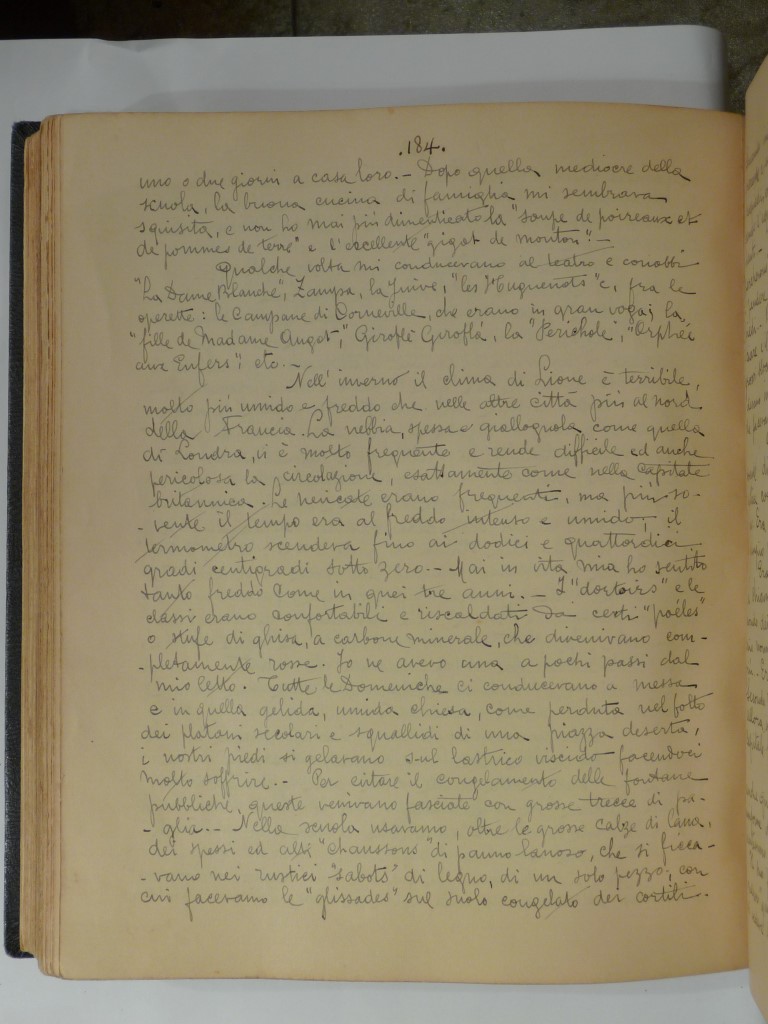 .184.
uno o due giorni a casa loro. - Dopo quella mediocre della
scuola, la buona cucina di famiglia mi sembrava
squisita, e non ho mai più dimenticato la "soupe de poireaux et
de pommes de terre" e l'eccellente "gigot de mouton". -
Qualche volta mi conducevano al teatro e conobbi
"La Dame Blanche", Zampa, la Juive, "les Huguenots" e, fra le
operette: le Campane di Corneville, che erano in gran voga; la
"fille de Madame Angot", Giroflè Giroflà, la "Perichole", "Orphée
aux Enfers"; etc. -
Nell'inverno il clima di Lione è terribile,
molto più umido e freddo che nelle altre città più al nord
della Francia. La nebbia, spessa e giallognola come quella
di Londra, vi è molto frequente e rende difficile ed anche
pericolosa la circolazione, esattamente come nella capitale
britannica. Le nevicate erano frequenti, ma più so-
-vente il tempo era al freddo intenso e umido; il
termometro scendeva fino ai dodici e quattordici
gradi centigradi sotto zero. - Mai in vita mia ho sentito
tanto freddo come in quei tre anni. - I "dortoirs" e le
classi erano confortabili e riscaldati da certi "poëles"
o stufe di ghisa, a carbone minerale, che divenivano com-
-pletamente rosse. Io ne avevo una a pochi passi dal
mio letto. Tutte le Domeniche ci conducevano a messa
e in quella gelida, umida chiesa, come perduta nel folto
dei platani secolari e squallidi di una piazza deserta,
i nostri piedi si gelavano sul lastrico viscido facendoci
molto soffrire. - Per evitare il congelamento delle fontane
pubbliche, queste venivano fasciate con grosse trecce di pa-
-glia. - Nella scuola usavamo, oltre le grosse calze di lana,
dei spessi ed alti "chaussons" di panno lanoso, che si ficca-
-vano nei rustici "sabots" di legno, di un solo pezzo, con
cui facevamo le "glissades" sul suolo congelato dei cortili.